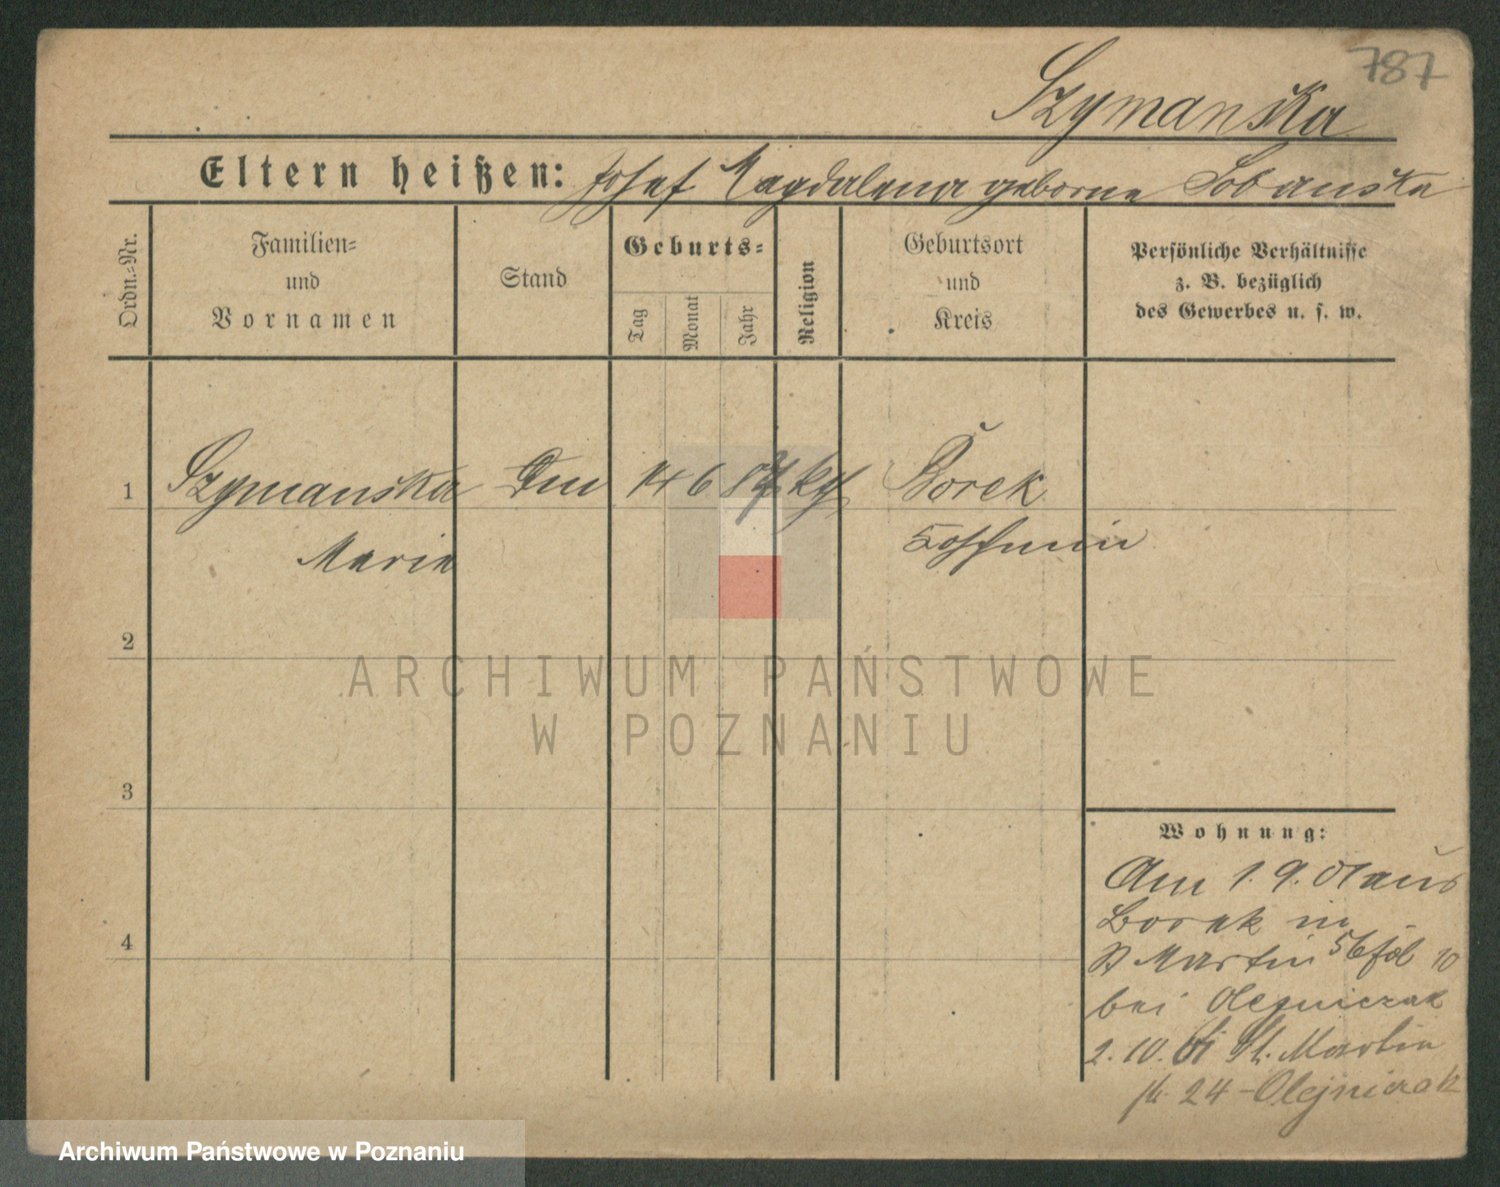 787
Szymanska
Eltern heißen: Josef Magdalena geborne Sobanska
Ordn.-Nr.
Familien-
und
Vornamen
Stand
Geburts-
Tag
Monat
Jahr
Religion
Geburtsort
und
Kreis
Persönliche Verhältnisse
z. B. bezüglich
des Gewerbes u. s. w.
1 Szymanska 14 6 87 Borek
Maria
2
ARCHIWUM PAŃSTWOWE
W POZNANIU
3
4
Wohnung:
Am 1. 9. 01 aus
Borek in
St Martin 56 10
bei Olejniczak
2. 10. 01 St. Martin
24 - Olejniczak
Archiwum Państwowe w Poznaniu